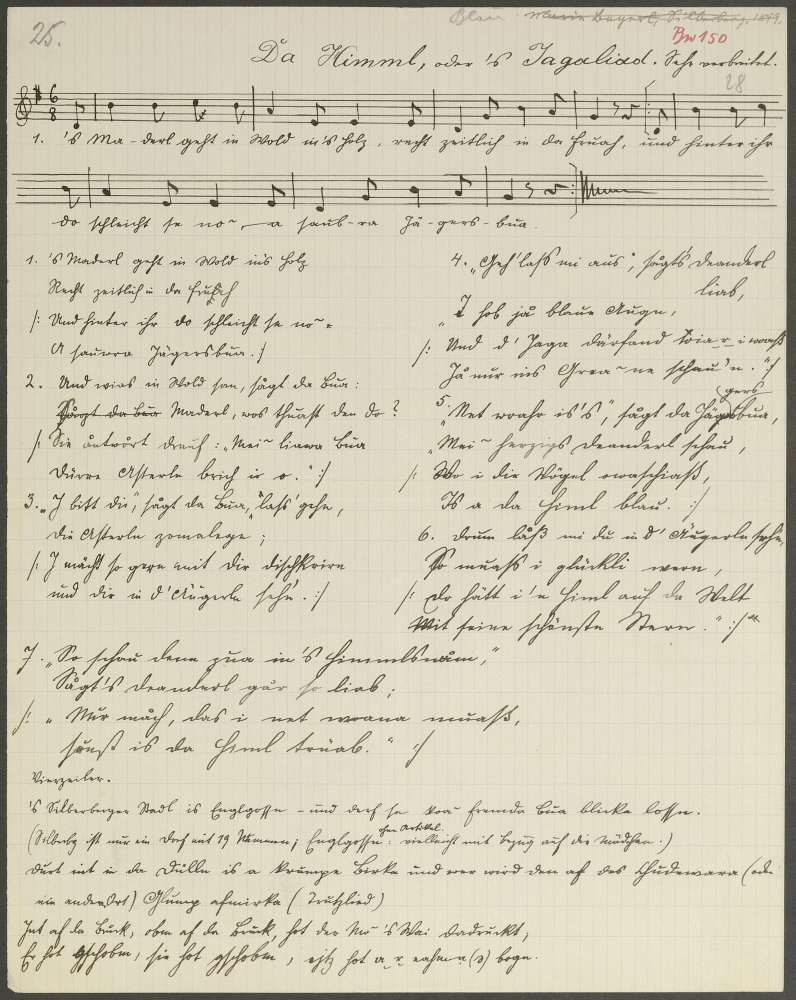 25.
Marie Bayerl, Silberberg, 1899.
Bw 150
28
Da Himml, oder 's Jagaliad. Sehr verbreitet.
1. 's Ma-derl geht in Wold in's Holz, recht zeitlich in da Fruah, und hinter ihr
do schleicht se no~ a saub-ra Jä-gers-bua.
1. 's Maderl geht in Wold ins Holz
Recht zeitlich in da Fruah
/: Und hinter ihr do schleicht se no~
A sauwra Jägersbua :/
2. Und wias in Wold san, sågt da Bua:
Maderl, wos thuast den do?
/: Sie åntwort drauf: „Mei~ liawa Bua
Dürre Asterle brich i o." :/
3. „I bitt di", sågt da Bua, „lass' gehn,
Die Asterln ;
/: I mächt so gern mit dir dischkrirn
und dir in d'Äugerln sehn. :/
4. „Geh' lass mi aus", sågt's Deanderl
liab,
„I hob jå blaue Augn,
/: Und d' Jaga därfand i woaß
Jå nur ins Grea~ne schau'n." :/
5. „Net woahr is's", sågt da Jägersbua,
„Mei~ herzigs Deanderl schau,
/: Wo i die Vögel owaschiaß,
Is a da Himl blau. :/
6. Drum låß mi du in d' Äugerln sehn,
So muaß i glückli wern,
/: Do hätt i 'n Himl auf da Welt
Mit seine schönste Stern." :/
7. „So schau denn zua in's Himmlsnam,"
Sågt's Deanderl går so liab;
/: „Nur måch, das i net woana muaß,
sunst is da Himl trüab." :/
Vierzeiler.
's Silberberger Stadl is Englgossn - und derf se koa~ fremda Bua blicka lossn.
(Silberbg ist nur ein Dorf mit 19 Nummern; Englgossn ohne Artikel: vielleicht mit Bezug auf die Mädchen.)
Durt int in da Dülln is a krumpe Birka und wer wird den af des (oder
ein andern Ort) Glump afmirka (Trutzlied)
Int af da Bruck, obm af da Bruck, hot der Mo 's Wai dadruckt;
Er hot gschobm, sie hot gschobm, ejtz hot a r bogn.